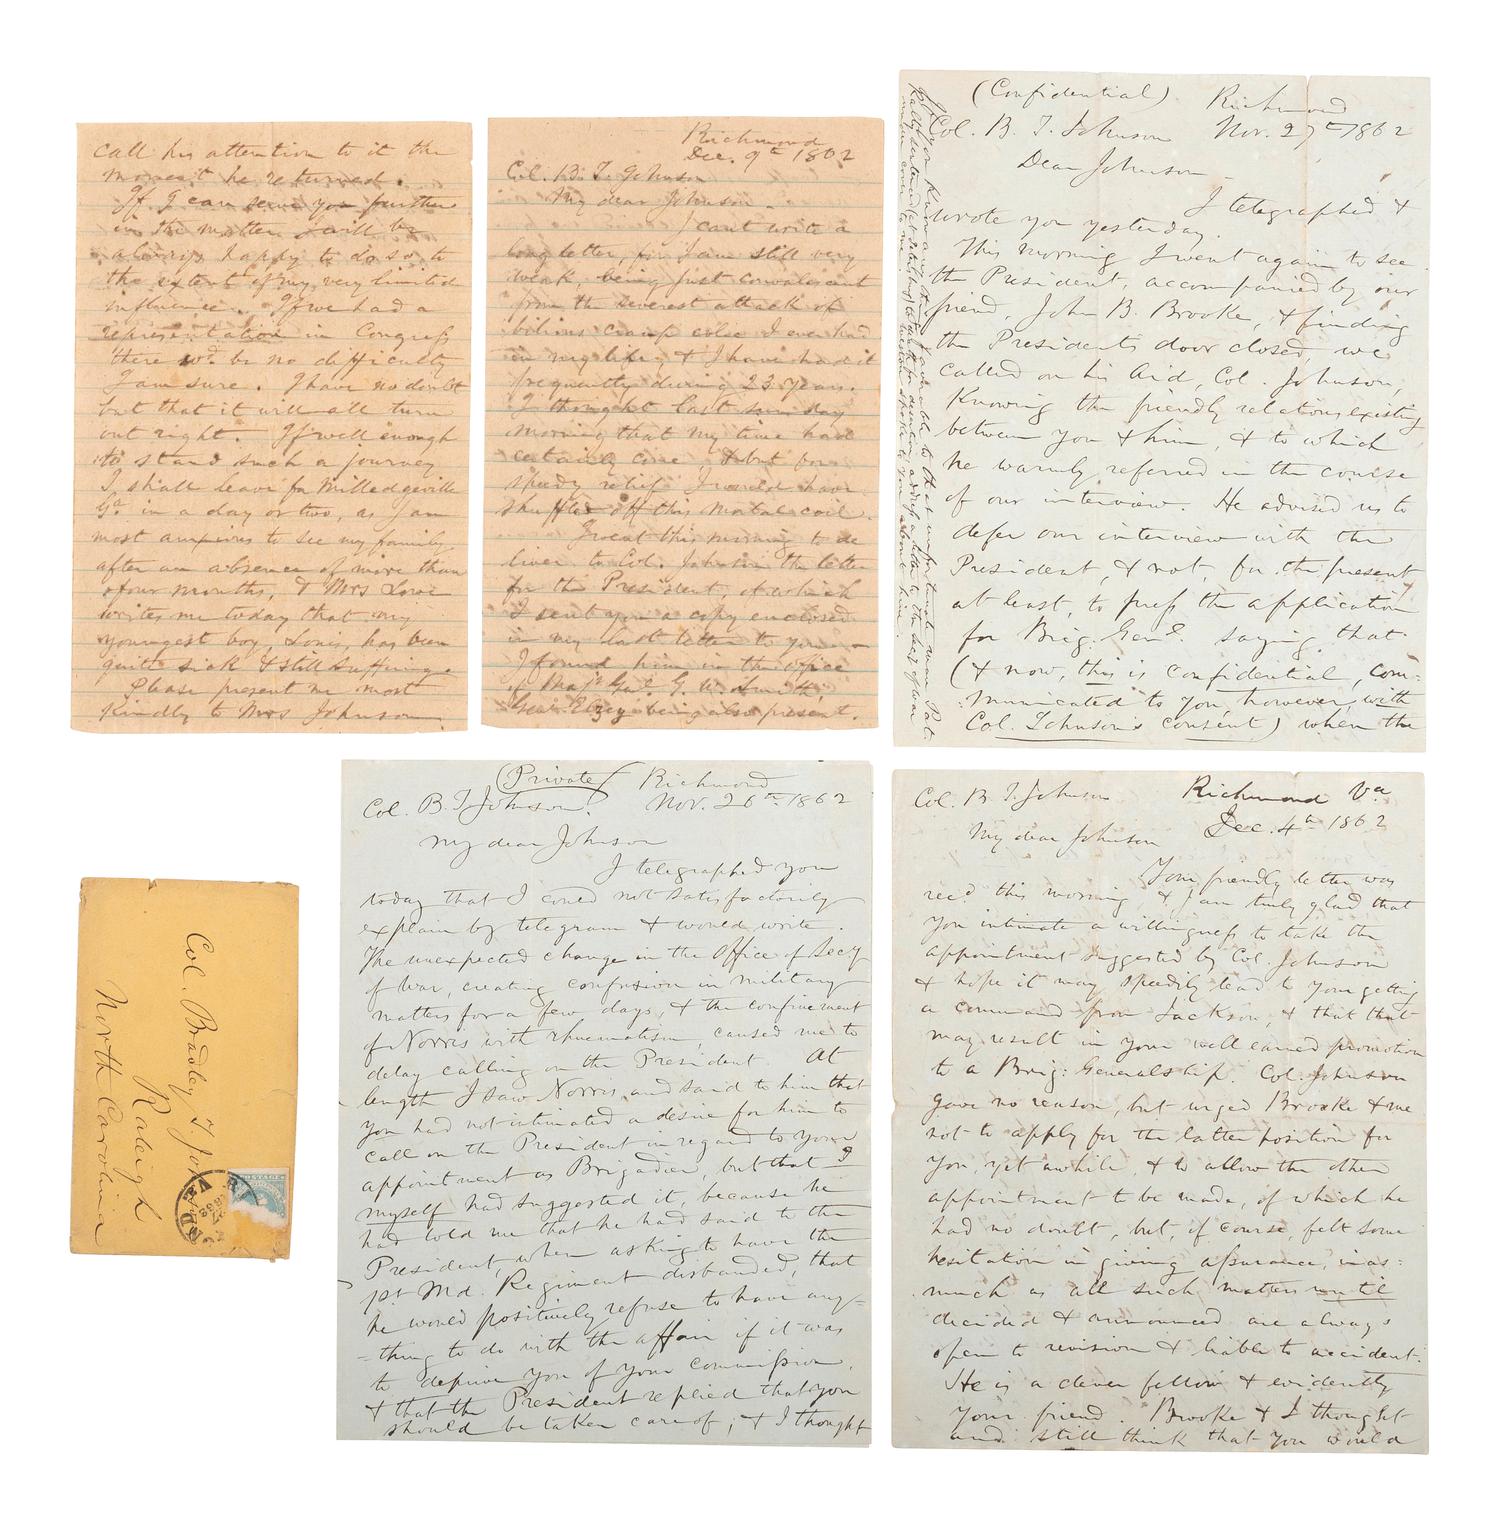 call his attention to it the
moment he returned.
If I can serve you further
in the matter I will be
always happy to do so to
the extent of my very limited
influence. If we had a
representation in Congress
there wd. be no difficulty
I am sure. I have no doubt
but that it will all turn
out right. If well enough
to stand such a journey
I shall leave for Milledgeville
Ga. in a day or two, as I am
most anxious to see my family
after an absence of more than
four months, & Mrs Lowe
writes me today that my
youngest boy, Louis, has been
quite sick & still suffering.
Please present me most
kindly to Mrs Johnson
Richmond
Dec. 9th 1862
Col. B. T. Johnson
My dear Johnson
I can't write a
long letter, for I am still very
weak, being just convalescent
from the severest attack of
bilious cramp colic I ever had
in my life, & I have had it
frequently during 23 years.
I thought last sunday
morning that my time had
certainly come, & but for
speedy relief I would have
shuffled off this mortal coil.
I went this morning to de
liver to Col. Johnston the letter
for the President, of which
I sent you a copy enclosed
in my last letter to you
I found him in the office
of Maj. Genl. G. W. Smith,
Genl. Elzey being also present.
(Confidential) Richmond
Nov. 27th 1862
Col. B. T. Johnson
Dear Johnson
I telegraphed &
wrote you yesterday.
This morning I went again to see
the President, accompanied by our
friend, John B. Brooke, & finding
the President's door closed, we
called on his Aid, Col. Johnson,
knowing the friendly relations existing
between you & him, & to which
he warmly referred in the course
of our interview. He advised us to
defer our interview with the
President, & not, for the present
at least, to press the application
for Brig. Genl. saying that
(& now, this is confidential, com-
municated to you however, with
Col. Johnson's consent) when the
If you know anything favorable to that unfortunate man Pat.
(Private) Richmond
Nov. 26th 1862
Col. B. T. Johnson
My dear Johnson
I telegraphed you
today that I could not satisfactorily
explain by telegram & would write.
The unexpected change in the Office of Secy
of War, creating confusion in military
matters for a few days, & the confinement
of Norris with rheumatism, caused me to
delay calling on the President. At
length I saw Norris and said to him that
you had not intimated a desire for him to
call on the President in regard to your
appointment as Brigadier, but that I
myself had suggested it, because he
had told me that he had said to the
President, when asking to have the
1st Md. Regiment disbanded, that
he would positively refuse to have any=
=thing to do with the affair if it was
to deprive you of your commission,
& that the President replied that you
should be taken care of; & I thought
Richmond Va
Dec. 4th 1862
Col. B T. Johnson
My dear Johnson
Your friendly letter was
recd. this morning, & I am truly glad that
you intimate a willingness to take the
appointment suggested by Col. Johnson
& hope it may speedily lead to your getting
a command from Jackson, & that that
may result in your well earned promotion
to a Brig: Generalship. Col. Johnson
gave no reason, but urged Brooke & me
not to apply for the latter position for
you, yet awhile, & to allow the other
appointment to be made, of which he
had no doubt, but, of course, felt some
hesitation in giving assurance, in as:
much as all such matters until
decided & announced are always
open to revision & liable to accident.
He is a clever fellow & evidently
your friend. Brooke & I thought
and still think that you would
Col. Bradley T. Johnson
Raleigh
North Carolina